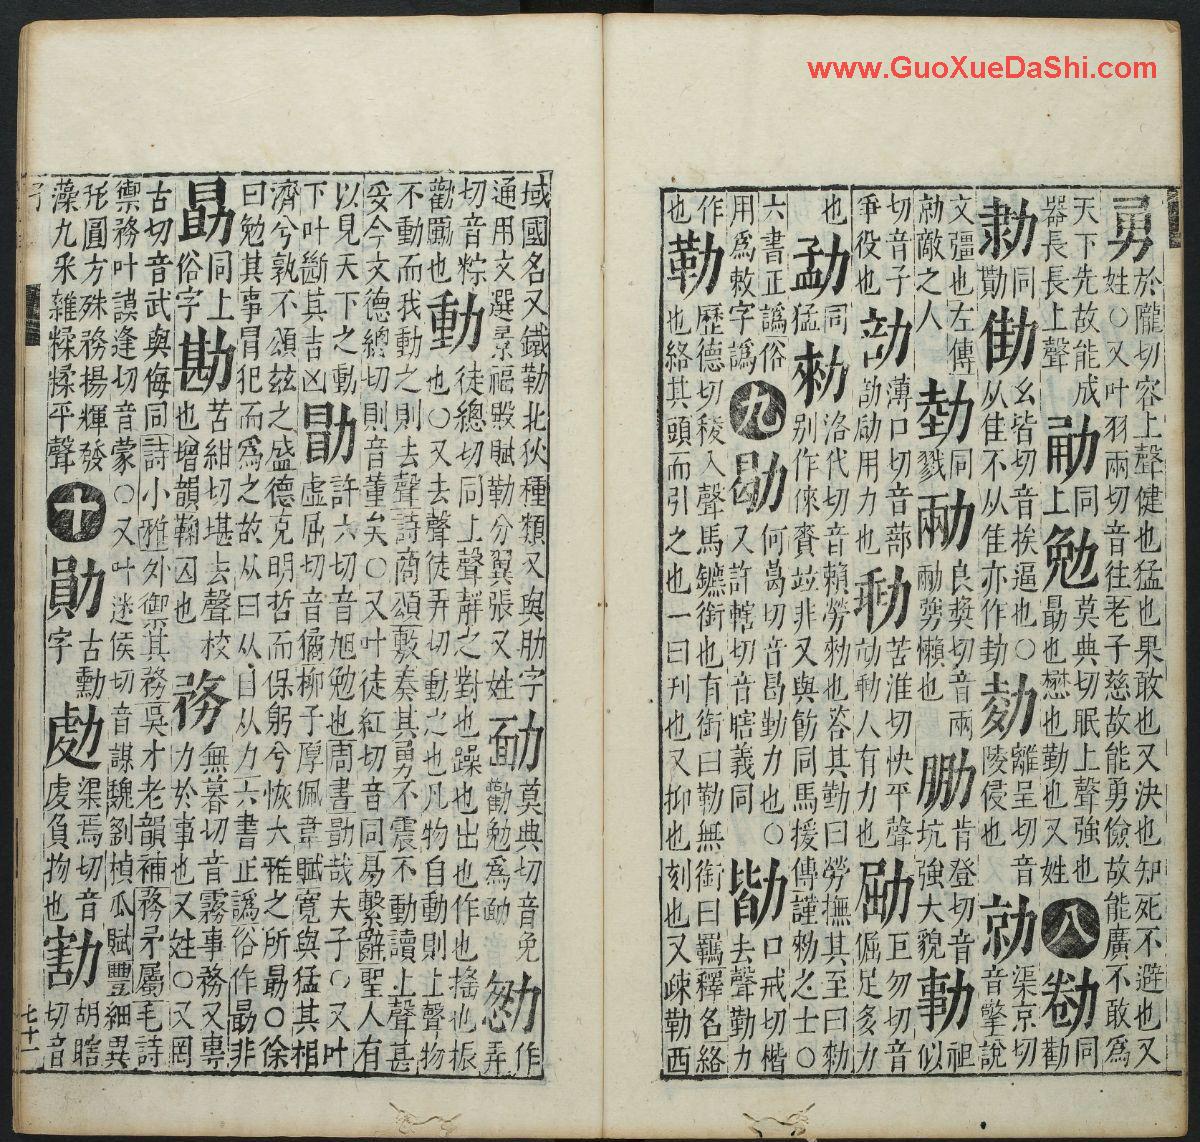 勇於隴切容上聲健也猛也果敢也又決也知死不避也又
姓○又叶羽兩切音往老子慈故能勇儉故能廣不敢爲
天下先故能成勈同勉莫典切眠上聲強也八勌同
器長長上聲上勗也懋也勤也又姓勸
同么皆切音挨逼也○離呈切音勍渠京切
从隹不从隹亦作劫陵侵也音擎說
文彊也左傳同良奬切音兩肯登切音徂
勍敵之人戮勥懶也坑強大貌似
切音子薄口切音蔀苦淮切快平聲巨勿切音
爭役也用力也動人有力也倔足多力
也勐同勑洛代切音賴勞勑也荅其勤曰勞撫其至曰勑
猛別作倈賚竝非又與飭同馬援傳謹勑之士○
六書正譌俗九何葛切音曷勤力也○勓口戒切楷
用爲敕字譌又許轄切音瞎義同去聲勤力
作勒歷德切稜入聲馬鑣銜也有銜曰勒無銜曰羈釋名絡
也也絡其頭而引之也一曰刊也又抑也刻也又疎勒西
域國名又鐵勒北狄種類又與肋字勔莫典切音免作
通用文選景福殿賦勒分翼張又姓勸勉爲勔弄
切音粽動徒總切同上聲靜之對也躁也出也作也搖也振
勸勵也也○又去聲徒弄切動之也凡物自動則上聲物
不動而我動之則去聲詩商頌敷奏其勇不震不動讀上聲甚
妥今文德總切則音董矣○又叶徒紅切音同昜繫辭聖人有
以見天下之動勖許六切音旭勉也周書勖哉夫子○又叶
下叶斷其吉凶虛屈切音矞柳子厚佩韋賦寬與猛其相
濟兮孰不頌茲之盛德克明哲而保躬兮恢大雅之所勗○徐
曰勉其事冒犯而爲之故从冃从目从力六書正譌俗作勗非
勗同上勘苦紺切堪去聲校務無暮切音霧事務又專
俗字也增韻鞫囚也力於事也又姓○又罔
古切音武與侮同詩小雅外御其務吳才老韻補務矛屬毛詩
禦務叶謨逢切音蒙○又叶迷侯切音謀魏劉楨瓜賦豐細異
形圓方殊務揚輝發十勛古勳䖍渠焉切音割胡瞎
藻九采雜糅糅平聲字虔負物也切音
七十一